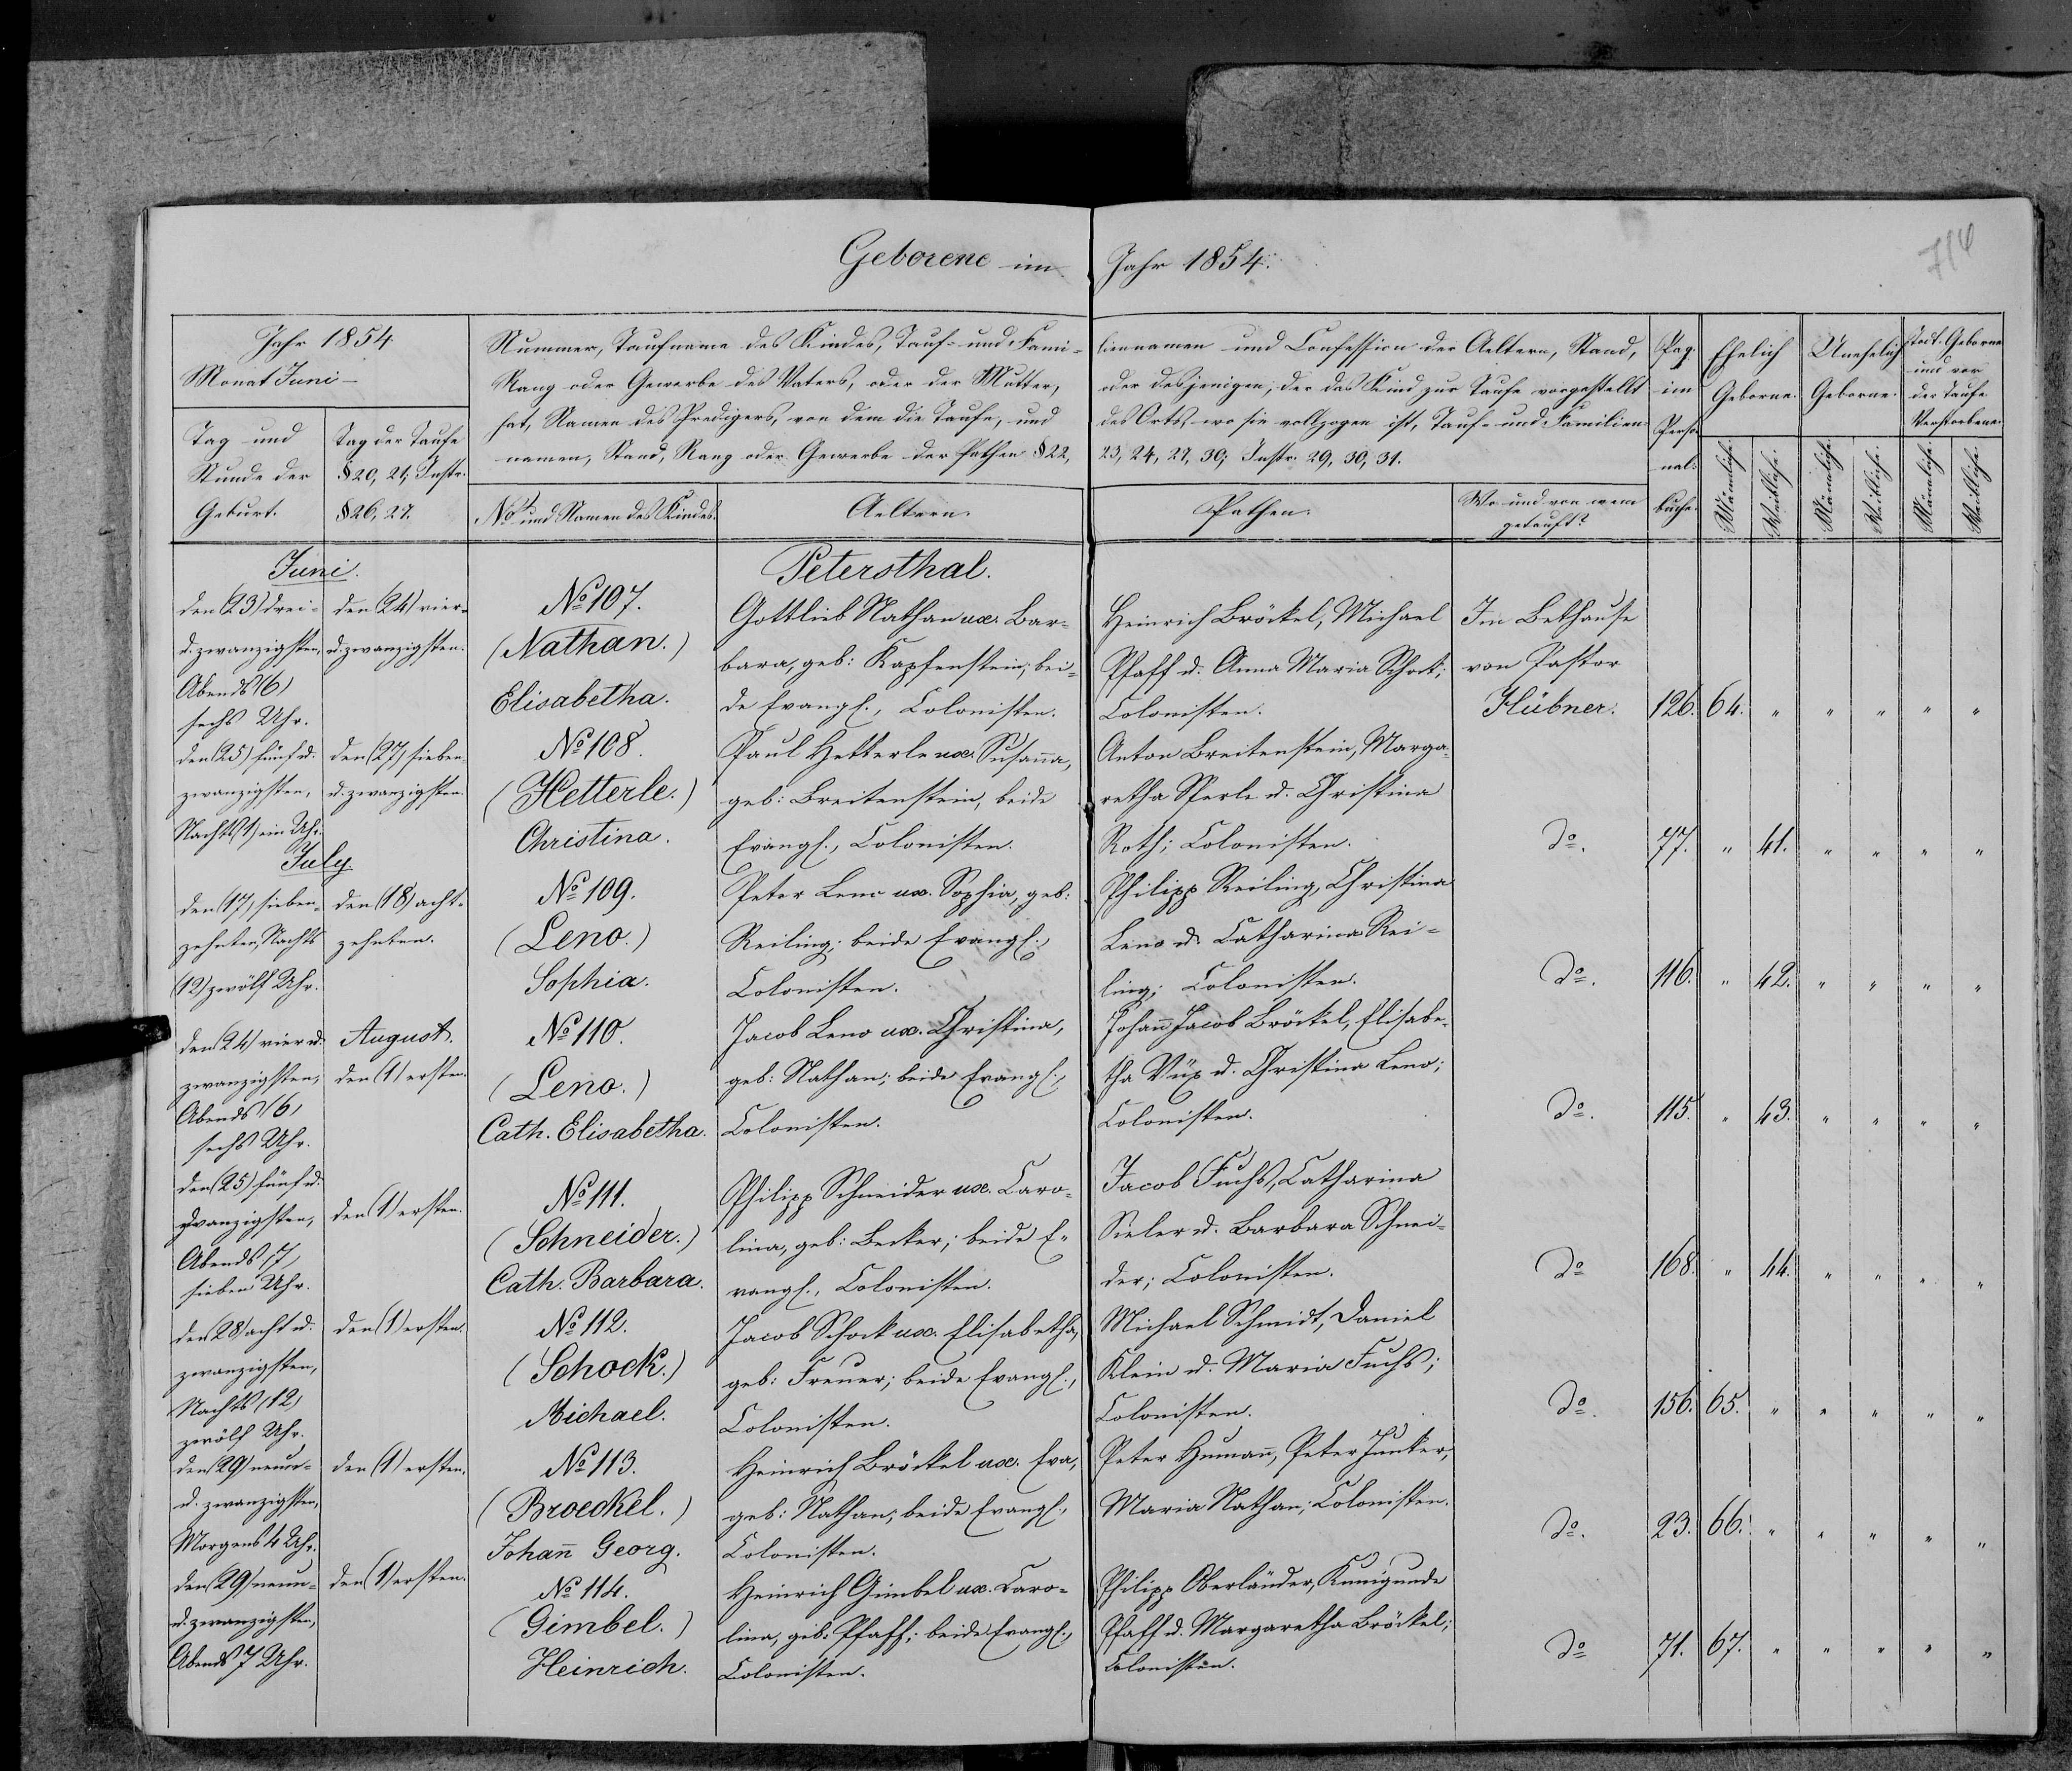 714
Geborene im Jahr 1854.
Jahr 1854
Monat Juni –
Tag und
Stunde der
Geburt.
Tag der Taufe
§20, 21; Instr.
§26, 27.
Nummer, Taufname des Kindes, Tauf- und Fami-
liennamen und Confession der Aeltern, Stand,
Rang oder Gewerbe des Vaters, oder der Mutter,
oder desjenigen, der das Kind zur Taufe vorgestellt
hat, Namen des Predigers, von dem die Taufe, und
des Orts, wo sie vollzogen ist, Tauf- und Familien-
namen, Stand, Rang oder Gewerbe der Pathen §22,
23, 24, 27, 30; Instr. 29, 30, 31.
No und Namen des Kindes.
Aeltern.
Pathen.
Wo und von wem
getauft?
Pag.
im
Perso-
nal-
buche.
Ehelich
Geborne.
Unehelich
Geborne.
Todt-Geborne
und vor
der Taufe
Verstorbene.
Männliche.
Weibliche.
Männliche.
Weibliche.
Männliche.
Weibliche.
Juni.
Petersthal.
den (23) drei-
u. zwanzigsten,
Abends (6)
sechs Uhr.
den (24) vier-
u. zwanzigsten.
No 107.
(Nathan.)
Elisabetha.
Gottlieb Nathan ux. Bar-
bara, geb: Kapfenstein; bei-
de Evangl., Colonisten.
Heinrich Bröckel, Michael
Pfaff u. Anna Maria Schock;
Colonisten.
Im Bethause
von Pastor
Hübner.
126. 64. " " " " "
den (25) fünf u.
zwanzigsten,
Nachts (1) ein Uhr.
den (27) sieben
u. zwanzigsten.
No 108.
(Hetterle.)
Christina.
Paul Hetterle ux. Susan̄a,
geb: Breitenstein, beide
Evangl., Colonisten.
Anton Breitenstein, Marga-
retha Sperle u. Christina
Roth; Colonisten.
do. 77. " 41. " " " "
July.
den (17) sieben-
zehnten, Nachts
(12) zwölf Uhr.
den (18) acht-
zehnten.
No 109.
(Leno.)
Sophia.
Peter Leno ux. Sophia, geb:
Reiling; beide Evangl.,
Colonisten.
Philipp Reiling, Christina
Leno u. Catharina Rei-
ling; Colonisten.
do. 116. " 42. " " " "
den (24) vier u.
zwanzigsten,
Abends (6)
sechs Uhr.
August.
den (1) ersten.
No 110.
(Leno.)
Cath. Elisabetha.
Jacob Leno ux. Christina,
geb: Nathan; beide Evangl.,
Colonisten.
Johan̄ Jacob Bröckel, Elisabe-
tha u. Christina Leno;
Colonisten.
do. 115. " 43. " " " "
den (25) fünf u.
zwanzigsten,
Abends (7)
sieben Uhr.
den (1) ersten.
No 111.
(Schneider.)
Cath. Barbara.
Philipp Schneider ux. Caro-
lina, geb: Becker; beide E-
vangl., Colonisten.
Jacob Fuchs, Catharina
Sieler u. Barbara Schnei-
der; Colonisten.
do 168. " 44. " " " "
den (28) acht u.
zwanzigsten,
Nachts (12)
zwölf Uhr.
den (1) ersten.
No 112.
(Schock.)
Michael.
Jacob Schock ux. Elisabetha,
geb: Freuer; beide Evangl.,
Colonisten.
Michael Schmidt, Daniel
Klein u. Maria Fuchs;
Colonisten.
do. 156. 65. " " " " "
den (29) neun-
u. zwanzigsten,
Morgens 4 Uhr.
den (1) ersten.
No 113.
(Broeckel.)
Johan̄ Georg.
Heinrich Bröckel ux. Eva,
geb: Nathan; beide Evangl.,
Colonisten.
Peter Human̄, Peter Junker,
Maria Nathan; Colonisten.
do. 23. 66. " " " " "
den (29) neun-
u. zwanzigsten,
Abends 7 Uhr.
den (1) ersten.
No 114.
(Gimbel.)
Heinrich.
Heinrich Gimbel ux. Caro-
lina, geb: Pfaff; beide Evangl.,
Colonisten.
Philipp Oberländer, Kunigunde
Pfaff u. Margaretha Bröckel;
Colonisten.
do 71. 67. " " " " "